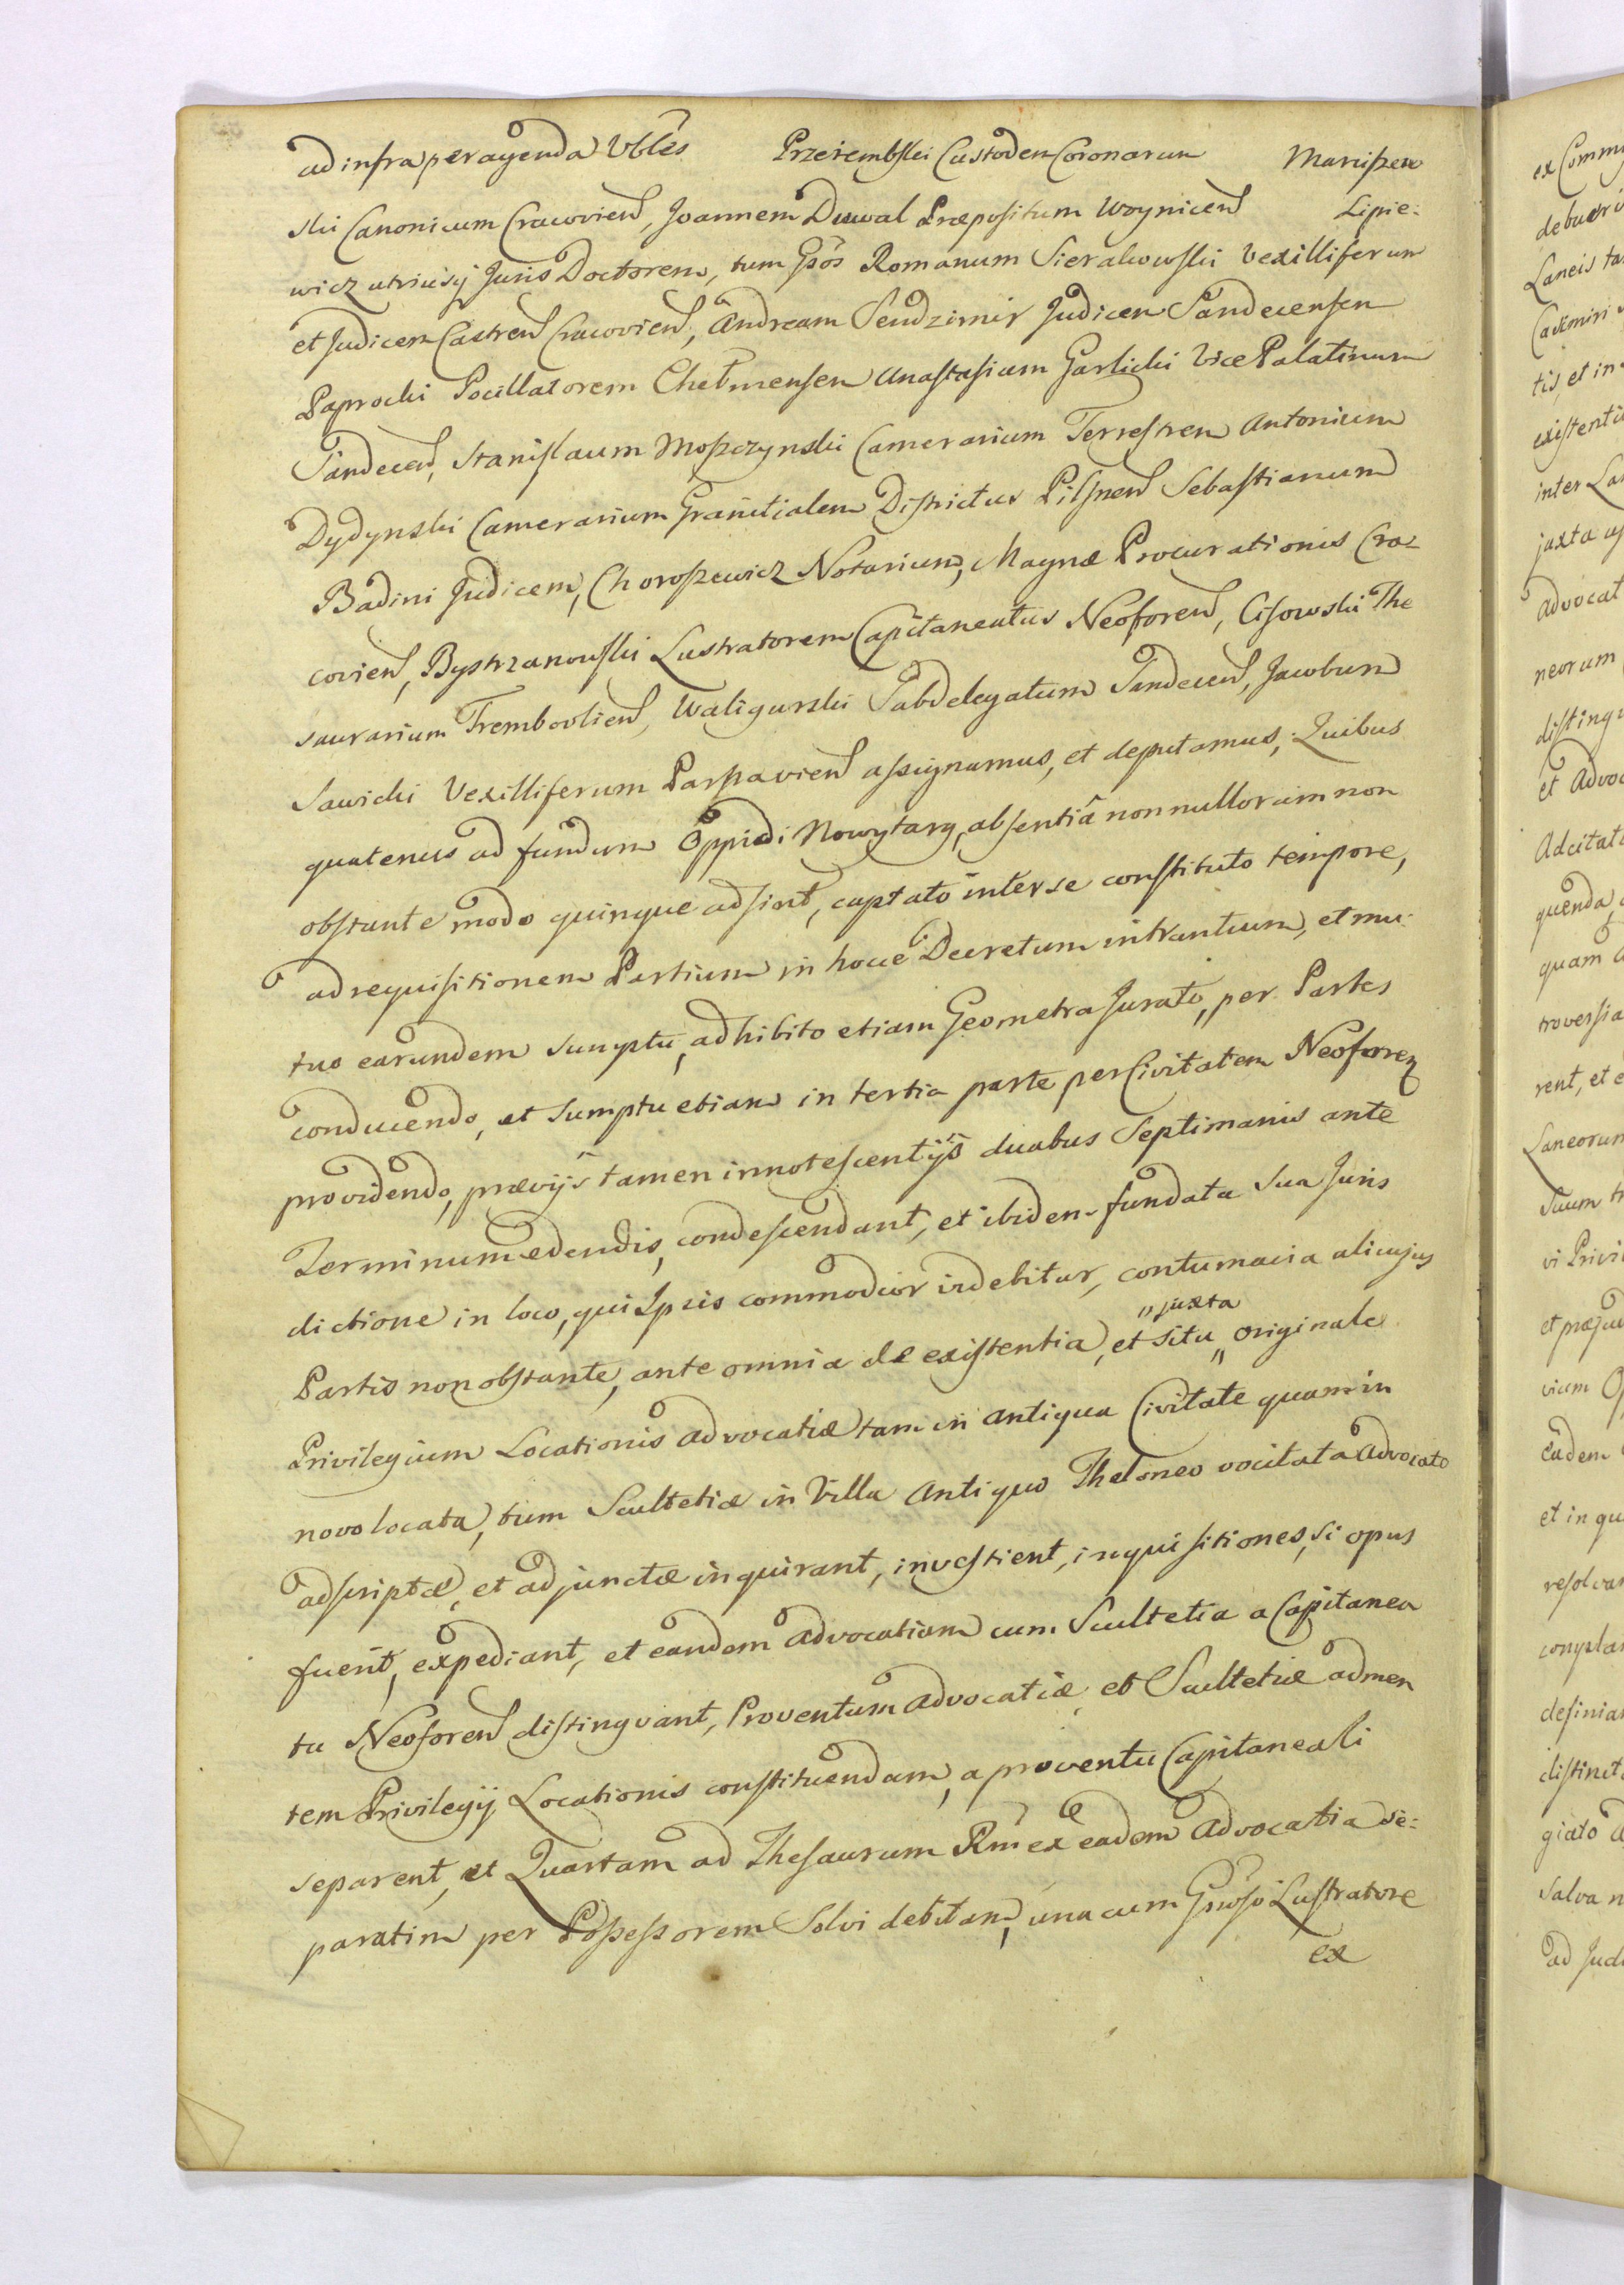 ad infra peragenda Vbles Przerembski Custodem Coronarum Maniszew
ski Canonicum Cracovien, Joannem Duwal Præpositum Woynicen Lipie:
wicz utriusq Juris Doctorem, tum Gsos Romanum Sierakowski Vexilliferum
et Judicem Castren Cracovien, Andream Sendzimir Judicem Sandecensem
Paprocki Pocillatorem Chełmensem Anastasium Garlicki Vice Palatinum
Sandecen, Stanislaum Moszczynski Camerarium Terrestrem Antonium
Dydynski Camerarium Granitialem Districtus Pilsnen Sebastianum
Badini Judicem, Choroszewicz Notarium, Magnæ Procurationis Cra-
covien, Bystrzanowski Lustratorem Capitaneatus Neoforen, Cisowski The
saurarium Trembovlien, Waligurski Subdelegatum Sandecen, Jacobum
Sawicki Vexilliferum Parnavien assignamus, et deputamus, Quibus
quatenus ad fundum Oppidi Nowytarg, absentiâ nonnullorum non
obstante modo quinque adsint, captato inter se constituto tempore,
ad requisitionem Partium in hocce Decretum intrantium, et mu:
tuo earundem sumptu, adhibito etiam Geometra Jurato, per Partes
conducendo, et sumptu etiam in tertia parte per Civitatem Neoforen
providendo, prævijs tamen innotescentijs duabus Septimanis ante
Terminum edendis, condescendant, et ibidem fundata sua Juris
dictione in loco, qui Ipsis commodior videbitur, contumacia alicujus
Partis non obstante, ante omnia de existentia, et situ „ originale
„ juxta
Privilegium Locationis Advocatiæ tam in antiqua Civitate quam in
novo locata, tum Scultetiæ in Villa Antiquo Theloneo vocitata Advocato
adscriptæ, et adjunctæ inquirant, investient, inquisitiones, si opus
fuerit, expediant, et eandem Advocatiam cum Scultetia a Capitanea
tu Neoforen distingvant, Proventum Advocatiæ et Scultetiæ ad men
tem Privilegij Locationis constituendam, a proventu Capitaneali
separent, et Quartam ad Thesaurum Rni ex eadem Advocatia se:
paratim per Possessorem Solvi debitam, una cum Gnoso Lustratore
ex